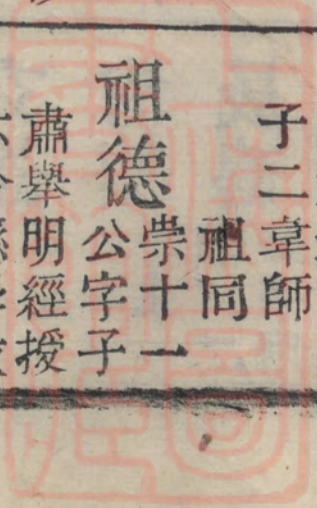 子二韋師
祖同
祖德崇十一
公字子
肅舉明經授